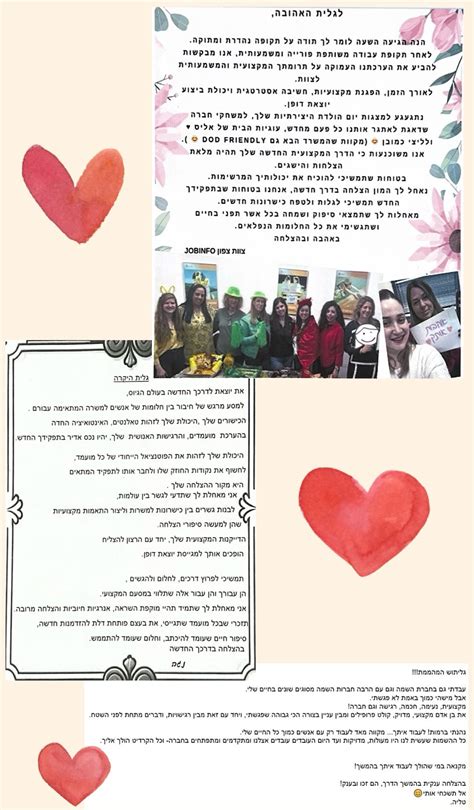 לגלית האהובה,
הנה הגיעה השעה לומר לך תודה על תקופה נהדרת ומתוקה.
לאחר תקופת עבודה משותפת פורייה ומשמעותית, אנו מבקשות
להביע את הערכתנו העמוקה על תרומתך המקצועית והמשמעותית
לצוות.
לאורך הזמן, הפגנת מקצועיות, חשיבה אסטרטגית ויכולת ביצוע
יוצאת דופן.
נתגעגע למצגות יום הולדת היצירתיות שלך, למשחקי חברה
שדאגת לאתגר אותנו כל פעם מחדש, עוגיות הבית של אליס ♥
ולליצי כמובן 😍 (מקווה שהמשרד הבא גם DOD FRIENDLY 😍).
אנו משוכנעות כי הדרך המקצועית החדשה שלך תהיה מלאת
הצלחה והישגים.
בטוחות שתמשיכי להוכיח את יכולותיך המרשימות.
נאחל לך המון הצלחה בדרך חדשה, אנחנו בטוחות שבתפקידך
החדש תמשיכי לגלות ולטפח כישרונות חדשים.
מאחלות לך שתמצאי סיפוק ושמחה בכל אשר תפני בחיים
ושתגשימי את כל החלומות הנפלאים.
באהבה ובהצלחה
צוות צפון JOBINFO
אוהבות אותך
גלית היקרה
את יוצאת לדרכך החדשה בעולם הגיוס,
למסע מרגש של חיבור בין חלומות של אנשים למשרה המתאימה עבורם .
הכישורים שלך ,היכולת שלך לזהות טאלנטים, האינטואיציה החדה
בהערכת מועמדים, והרגישות האנושית שלך, יהיו נכס אדיר בתפקידך החדש.
היכולת שלך לזהות את הפוטנציאל הייחודי של כל מועמד,
לחשוף את נקודות החוזק שלו ולחבר אותו לתפקיד המתאים
היא מקור ההצלחה שלך.
אני מאחלת לך שתדעי לגשר בין עולמות,
לבנות גשרים בין כישרונות למשרות וליצור התאמות מקצועיות
שהן למעשה סיפורי הצלחה.
הדייקנות המקצועית שלך, יחד עם הרצון להצליח
הופכים אותך למגייסת יוצאת דופן.
תמשיכי לפרוץ דרכים, לחלום ולהגשים ,
הן עבורך והן עבור אלה שתלווי במסעם המקצועי.
אני מאחלת לך שתמיד תהיי מוקפת השראה, אנרגיות חיוביות והצלחה מרובה.
תזכרי שבכל מועמד שתגייסי, את בעצם פותחת דלת להזדמנות חדשה,
סיפור חיים שעומד להיכתב, וחלום שעומד להתממש.
בהצלחה בדרכך החדשה
גליתוש המהממת!!!!
עבדתי גם בחברת השמה וגם עם הרבה חברות השמה מסוגים שונים בחיים שלי.
אבל מישהי כמוך באמת לא פגשתי.
מקצועית, נעימה, חכמה, רגישה וגם חברה!
את בן אדם מקצועי, מדויק, קולט פרופילים ומבין עניין בצורה הכי גבוהה שפגשתי, ויחד עם זאת מבין רגישויות, ודברים מתחת לפני השטח.
נהנתי ברמות! לעבוד איתך... מקווה מאד לעבוד רק עם אנשים כמוך כל החיים שלי.
כל ההשמות שעשית לנו היו מעולות, מדויקות ועד היום העובדים עובדים אצלנו ומתקדמים ומתפתחים בחברה- וכל הקרדיט הולך אליך.
מקנאה במי שהולך לעבוד איתך בהמשך!
בהצלחה ענקית בהמשך הדרך, הם זכו ובענק!
אל תשכחי אותי😊
טליה.